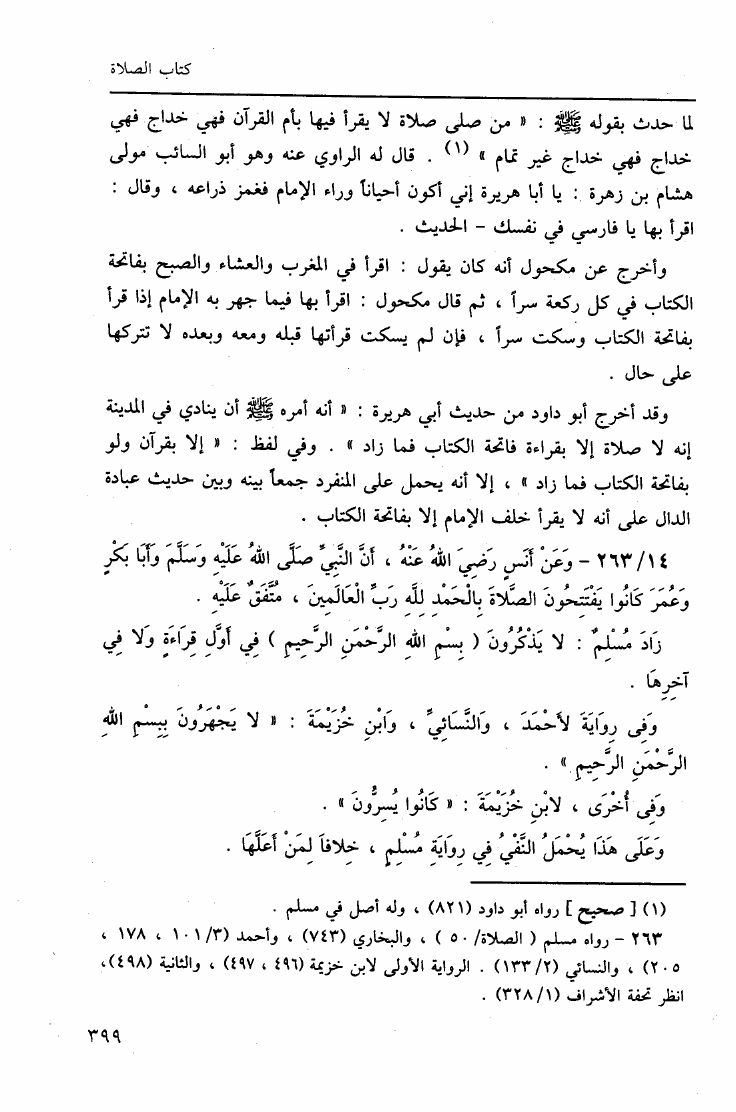 كتاب الصلاة
لما حدث بقوله ﷺ : « من صلى صلاة لا يقرأ فيها بأم القرآن فهي خداج فهي
خداج فهي خداج غير تمام » (١) . قال له الراوي عنه وهو أبو السائب مولى
هشام بن زهرة : يا أبا هريرة إني أكون أحياناً وراء الإمام فغمز ذراعه ، وقال :
اقرأ بها يا فارسي في نفسك – الحديث .
وأخرج عن مكحول أنه كان يقول : اقرأ في المغرب والعشاء والصبح بفاتحة
الكتاب في كل ركعة سراً ، ثم قال مكحول : اقرأ بها فيما جهر به الإمام إذا قرأ
بفاتحة الكتاب وسكت سراً ، فإن لم يسكت قرأتها قبله ومعه وبعده لا تتركها
على حال .
وقد أخرج أبو داود من حديث أبي هريرة : « أنه أمره ﷺ أن ينادي في المدينة
إنه لا صلاة إلا بقراءة فاتحة الكتاب فما زاد » . وفي لفظ : « إلا بقرآن ولو
بفاتحة الكتاب فما زاد » ، إلا أنه يحمل على المنفرد جمعاً بينه وبين حديث عبادة
الدال على أنه لا يقرأ خلف الإمام إلا بفاتحة الكتاب .
٢٦٣/١٤ – وَعَنْ أَنَسٍ رَضِيَ اللهُ عَنْهُ ، أَنَّ النَّبِيَّ صَلَّى اللهُ عَلَيْهِ وَسَلَّمَ وَأَبَا بَكْرٍ
وَعُمَرَ كَانُوا يَفْتَتِحُونَ الصَّلَاةَ بِالْحَمْدِ للَّهِ رَبِّ الْعَالَمِينَ ، مُتَّفَقٌ عَلَيْهِ .
زَادَ مُسْلِمٌ : لَا يَذْكُرُونَ ( بِسْمِ اللهِ الرَّحْمَنِ الرَّحِيمِ ) فِي أَوَّلِ قِرَاءَةٍ وَلَا فِي
آخِرِهَا .
وَفِى رِوَايَةٍ لأَحْمَدَ ، وَالنَّسَائِيِّ ، وَابْنِ خُزَيْمَةَ : « لَا يَجْهَرُونَ بِبِسْمِ اللهِ
الرَّحْمَنِ الرَّحِيمِ » .
وَفِى أُخْرَى ، لابْنِ خُزَيْمَةَ : « كَانُوا يُسِرُّونَ » .
وَعَلَى هَذَا يُحْمَلُ النَّفْيُ فِي رِوَايَةِ مُسْلِمٍ ، خِلَافاً لِمَنْ أَعَلَّهَا .
(١) [ صحيح ] رواه أبو داود (٨٢١) ، وله أصل في مسلم .
٢٦٣ – رواه مسلم ( الصلاة/ ٥٠ ) ، والبخاري (٧٤٣) ، وأحمد (١٠١/٣ ، ١٧٨ ،
٢٠٥) ، والنسائي (١٣٣/٢) . الرواية الأولى لابن خزيمة (٤٩٦ ، ٤٩٧) ، والثانية (٤٩٨)،
انظر تحفة الأشراف (٣٢٨/١) .
٣٩٩